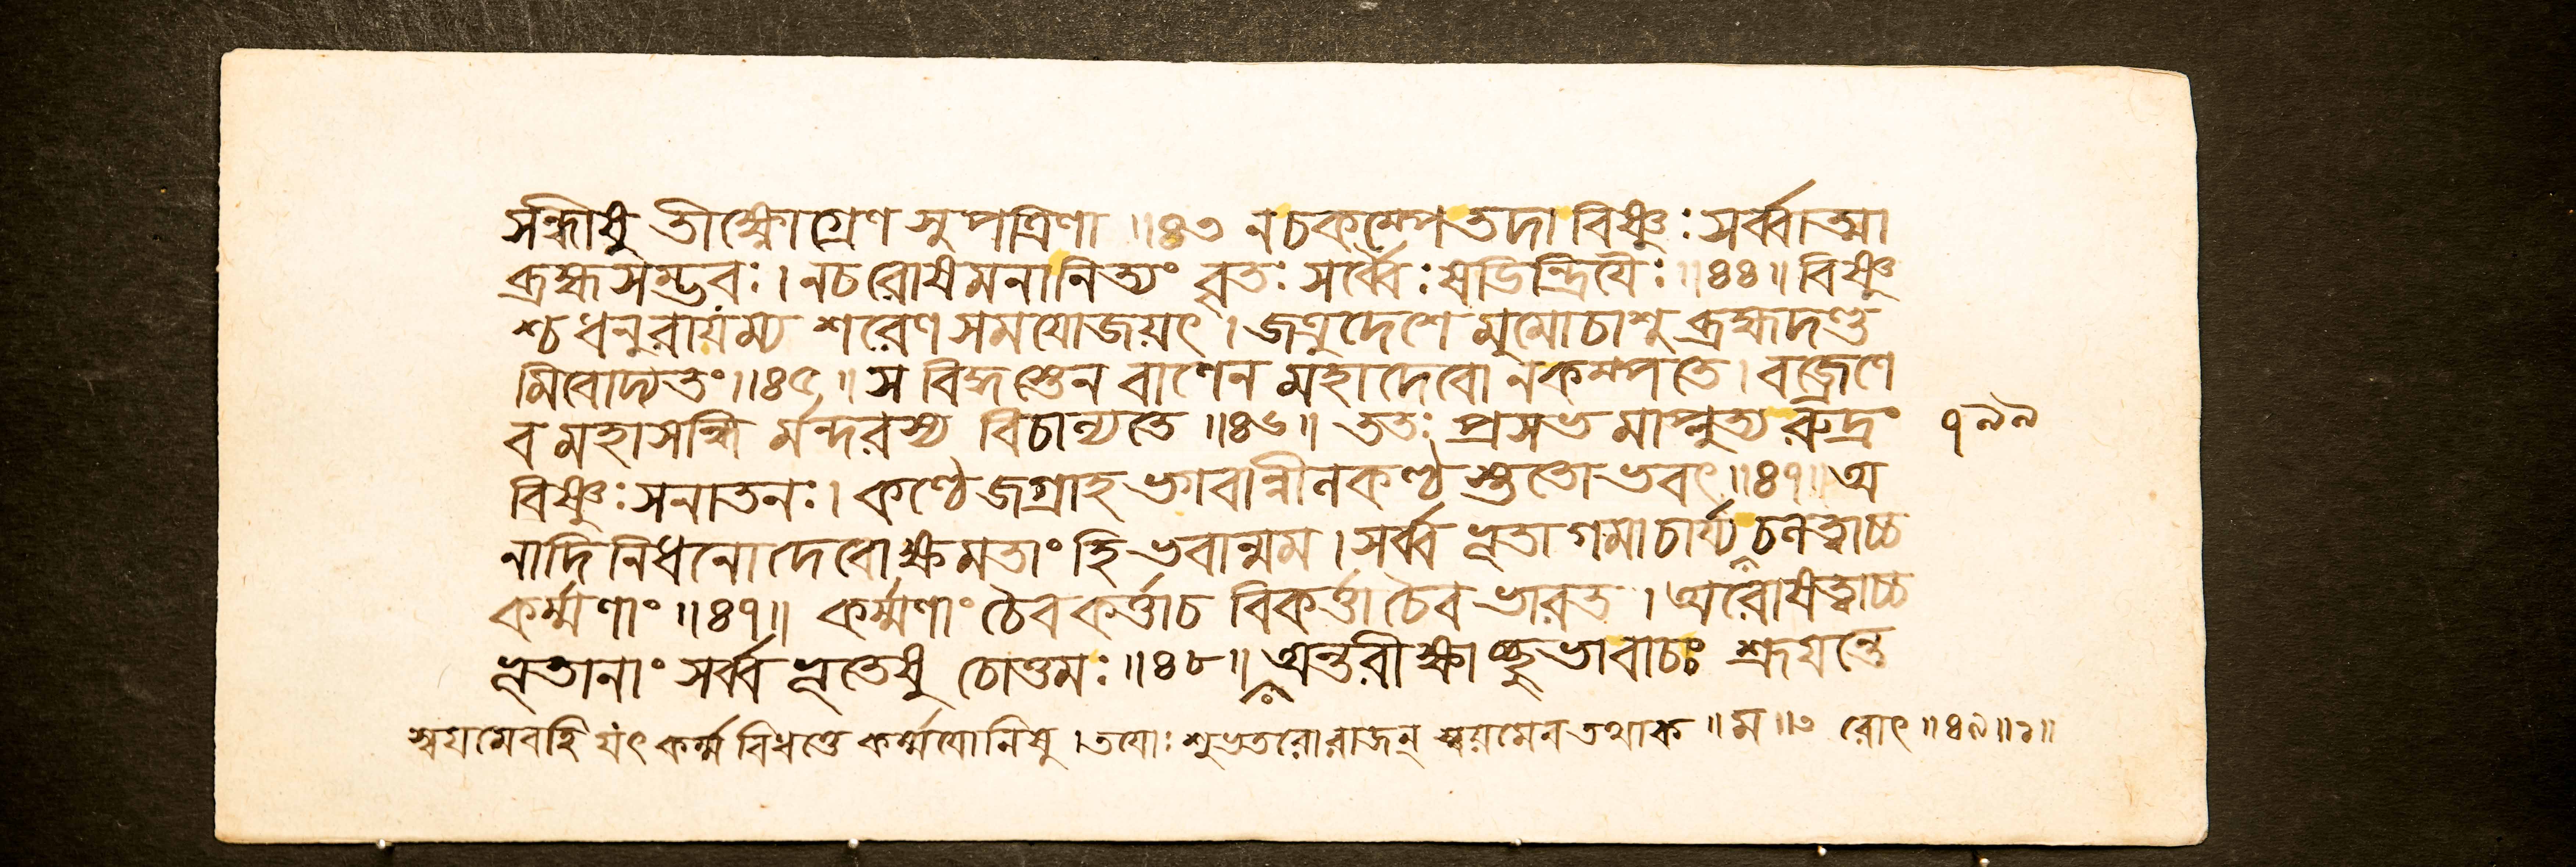 সন্ধীষু তীক্ষ্ণাগ্রেণ সুপত্রিণা ॥৪৩ নচকম্পেতদা বিষ্ণুঃ সর্ব্বাত্মা
ব্রহ্মসম্ভবঃ। নচরোষমনানিত্যং বৃতঃ সর্ব্বৈঃ ষড়িন্দ্রিযৈঃ ॥৪৪॥ বিষ্ণু
শ্চ ধনুরাযম্য শরেণ সমযোজয়ৎ। জত্রুদেশে মুমোচাশু ব্রহ্মদণ্ড
মিবোদ্যতং॥৪৫॥ স বিদ্ধস্তেন বাণেন মহাদেবো নকম্পতে। বজ্রেণে
ব মহাসন্ধি র্মন্দরস্য বিচাল্যতে ॥৪৬॥ ততঃ প্রসভমাপ্লুত্য রুদ্রং
বিষ্ণুঃ সনাতনঃ। কণ্ঠে জগ্রাহ ভগবান্নীলকণ্ঠ স্ততো ভবৎ॥৪৭॥ অ
নাদি নিধনো দেবো ক্ষমতাং হি ভবান্মম। সর্ব্ব ভূতাগমাচার্য্য চলত্বাচ্চ
কর্ম্মণাং ॥৪৭॥ কর্ম্মণাং চৈব কর্ত্তাচ বিকর্ত্তাচৈব ভারত। অরোষত্বাচ্চ
ভূতানাং সর্ব্ব ভূতেষু চোত্তমঃ ॥৪৮॥ অন্তরীক্ষাচ্ছুভাবাচঃ শ্রূযন্তে
স্বযমেবহি যৎ কর্ম্ম বিধত্তে কর্ম্মযোনিষু। তযোঃ শুভতরো রাজন্ স্বয়মেব তথাক ॥ ম ॥৩ রোৎ ॥৪৯॥২॥
৭৯৯